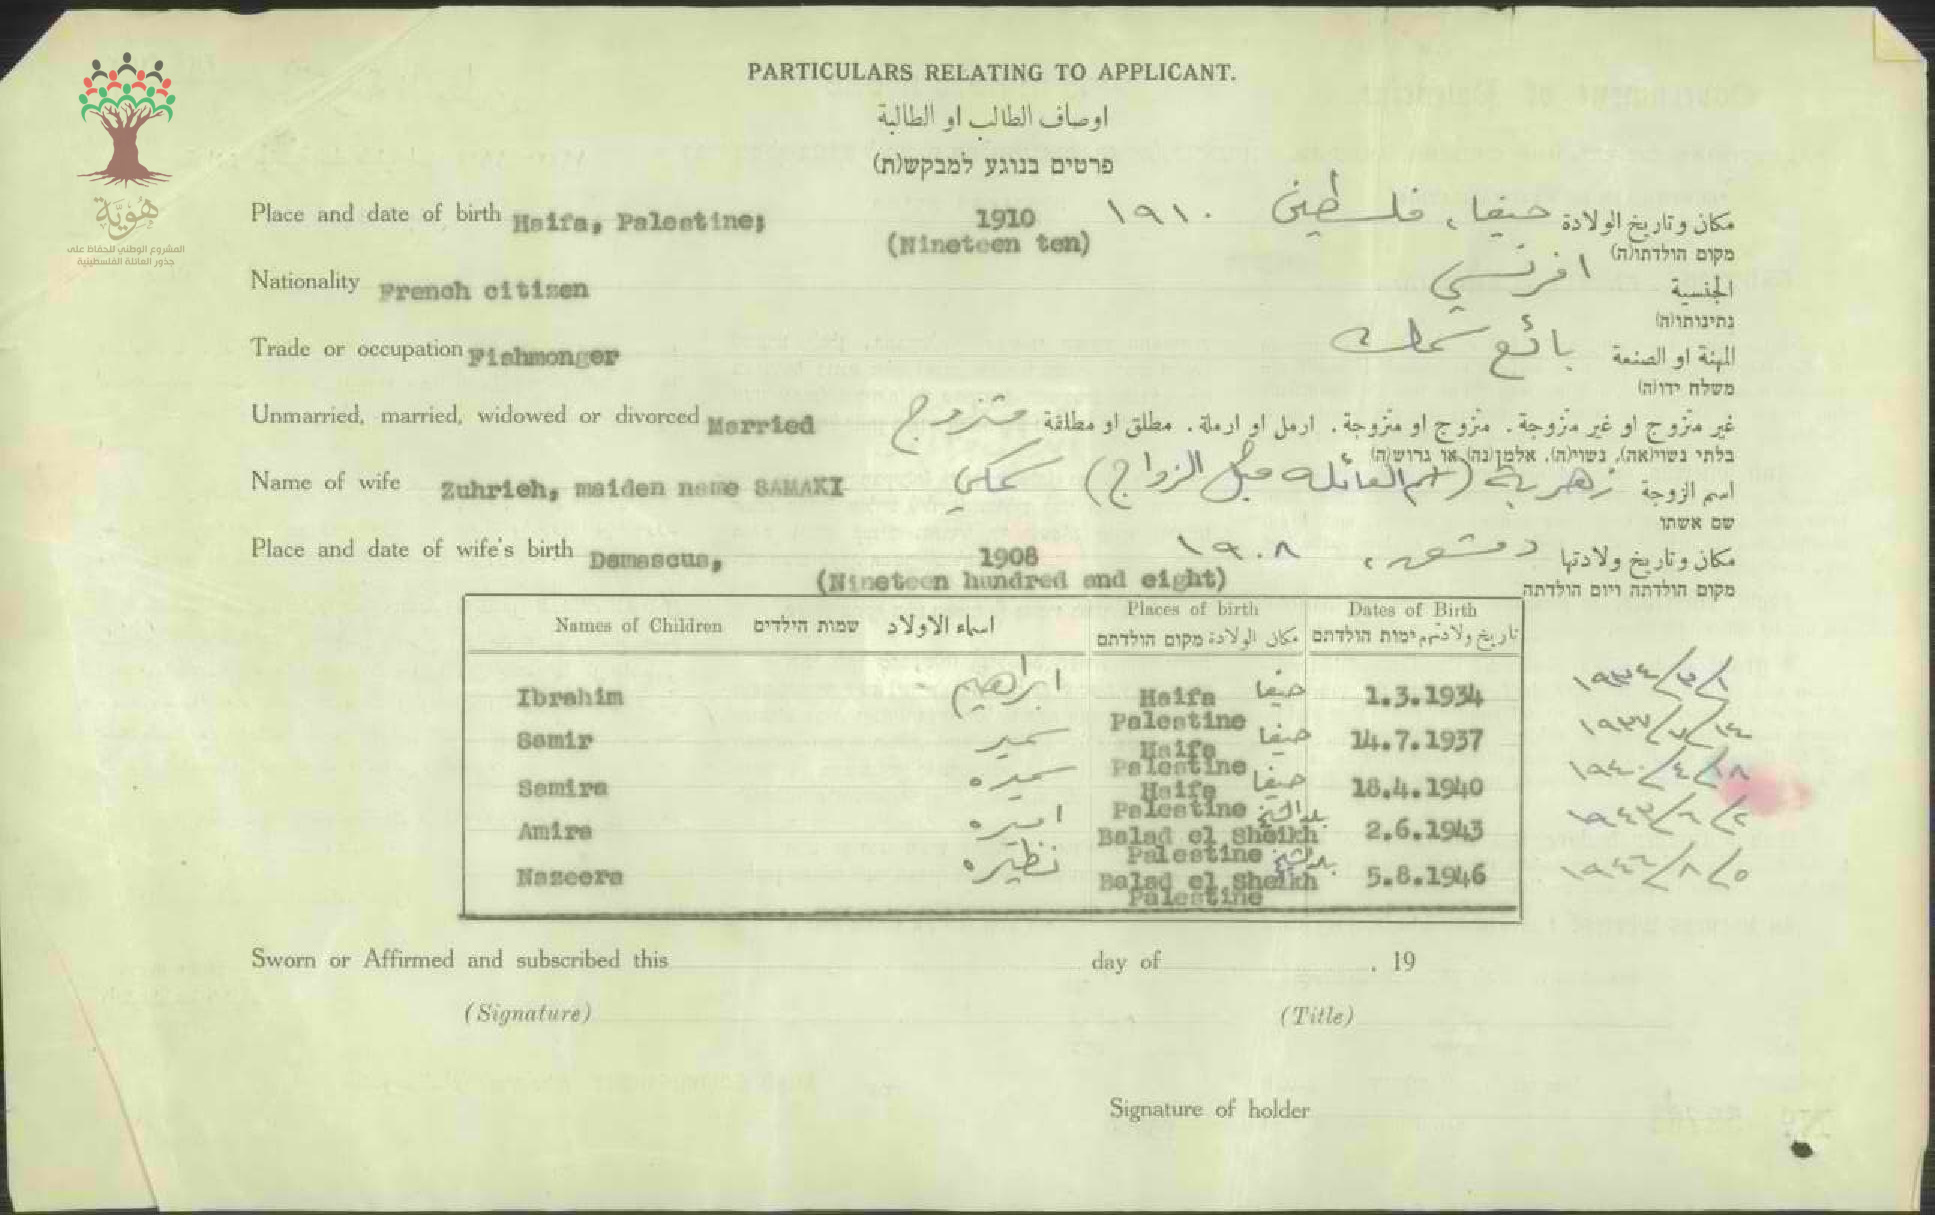 هُويّة
المشروع الوطني للحفاظ على
جذور العائلة الفلسطينية
PARTICULARS RELATING TO APPLICANT.
اوصاف الطالب او الطالبة
פרטים בנוגע למבקש(ת)
Place and date of birth Haifa, Palestine; 1910 ١٩١٠ حيفا، فلسطين مكان وتاريخ الولادة
(Nineteen ten) מקום הולדתו(ה)
Nationality French citizen افرنسي الجنسية
נתינותו(ה)
Trade or occupation Fishmonger بائع سمك المهنة او الصنعة
משלח ידו(ה)
Unmarried, married, widowed or divorced Married متزوج غير متزوج او غير متزوجة. متزوج او متزوجة. ارمل او ارملة. مطلق او مطلقة
בלתי נשוי(אה), נשוי(ה), אלמן(נה) או גרוש(ה)
Name of wife Zuhrieh, maiden name SAMAKI زهرية (اسم العائله قبل الزواج) سمكي اسم الزوجة
שם אשתו
Place and date of wife's birth Damascus, 1908 دمشق، ١٩٠٨ مكان وتاريخ ولادتها
(Nineteen hundred and eight) מקום הולדתה ויום הולדתה
Names of Children שמות הילדים اسماء الاولاد Places of birth Dates of Birth
مكان الولادة מקום הולדתם تاريخ ولادتهم ימות הולדתם
Ibrahim ابراهيم Haifa حيفا 1.3.1934 ١٩٣٤/٣/١
Palestine
Samir سمير Haifa حيفا 14.7.1937 ١٩٣٧/٧/١٤
Palestine
Samira سميره Haifa حيفا 18.4.1940 ١٩٤٠/٤/١٨
Palestine
Amira اميره Balad el Sheikh بلد الشيخ 2.6.1943 ١٩٤٣/٦/٢
Palestine
Nazeera نظيره Balad el Sheikh بلد الشيخ 5.8.1946 ١٩٤٦/٨/٥
Palestine
Sworn or Affirmed and subscribed this day of . 19
(Signature) (Title)
Signature of holder